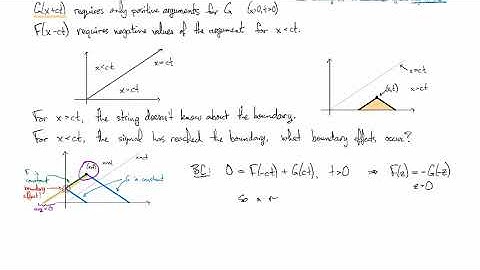 G(x+ct) requires only positive arguments for G (x>0, t>0)
F(x-ct) requires negative values of the argument for x<ct.
x<ct
x=ct
x>ct
x=ct
(x,t)
x>ct
For x>ct, the string doesn't know about the boundary.
For x<ct, the signal has reached the boundary, what boundary effects occur?
x<ct
x=ct
(x,t)
F is constant
boundary effect!
G is constant
BC: 0 = F(-ct) + G(ct), t>0 ⇒ F(z) = -G(-z)
z<0
So